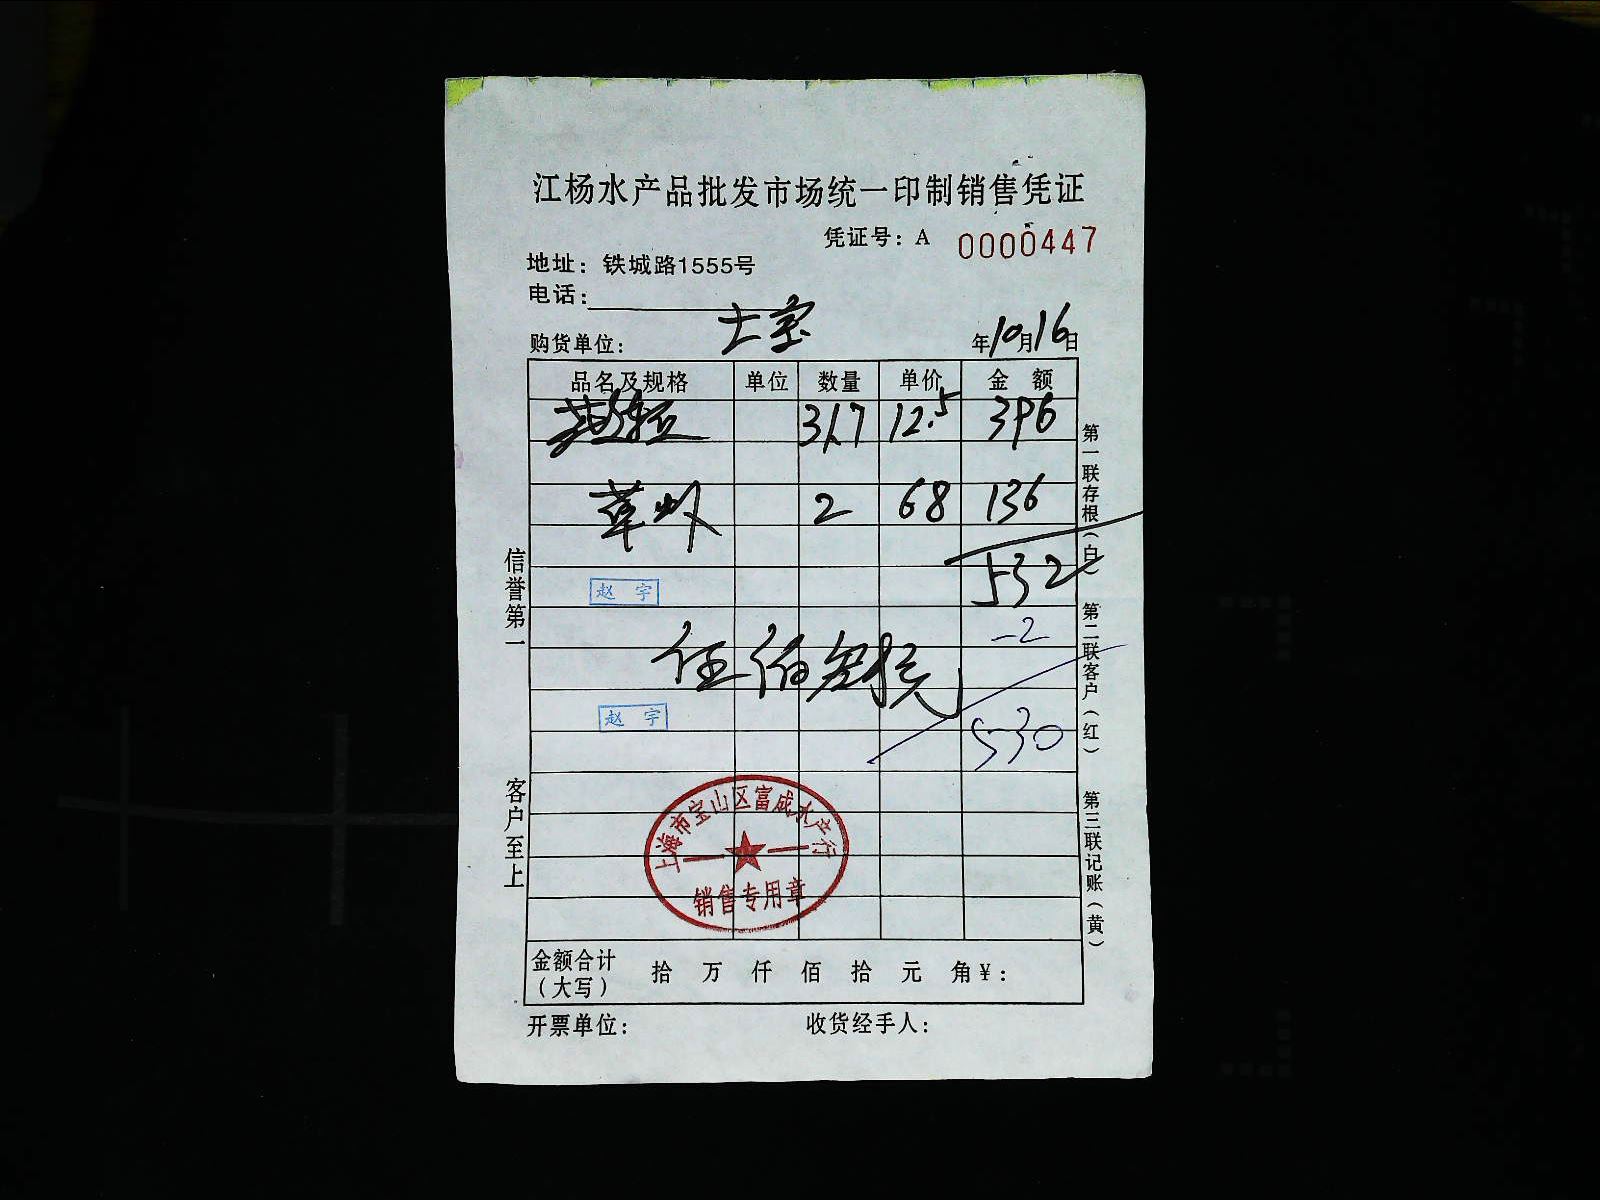 江杨水产品批发市场统一印制销售凭证
凭证号：A 0000447
地址：铁城路1555号
电话：
购货单位： 士宝 年10月16日
品名及规格 单位 数量 单价 金额
31.7 12.5 396
草虾 2 68 136
532
赵宇
-2
伍佰叁拾元
赵宇
530
上海市宝山区富成水产行
销售专用章
金额合计（大写） 拾 万 仟 佰 拾 元 角 ¥：
开票单位： 收货经手人：
信誉第一 客户至上
第一联存根（白） 第二联客户（红） 第三联记账（黄）